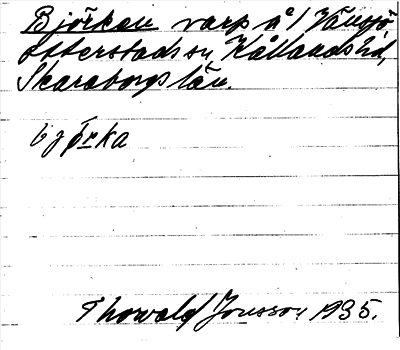 Björkan varp å
Otterstads sn, Kållands hd,
Skaraborgs län.
björka
Thorvald Jonsson 1935.